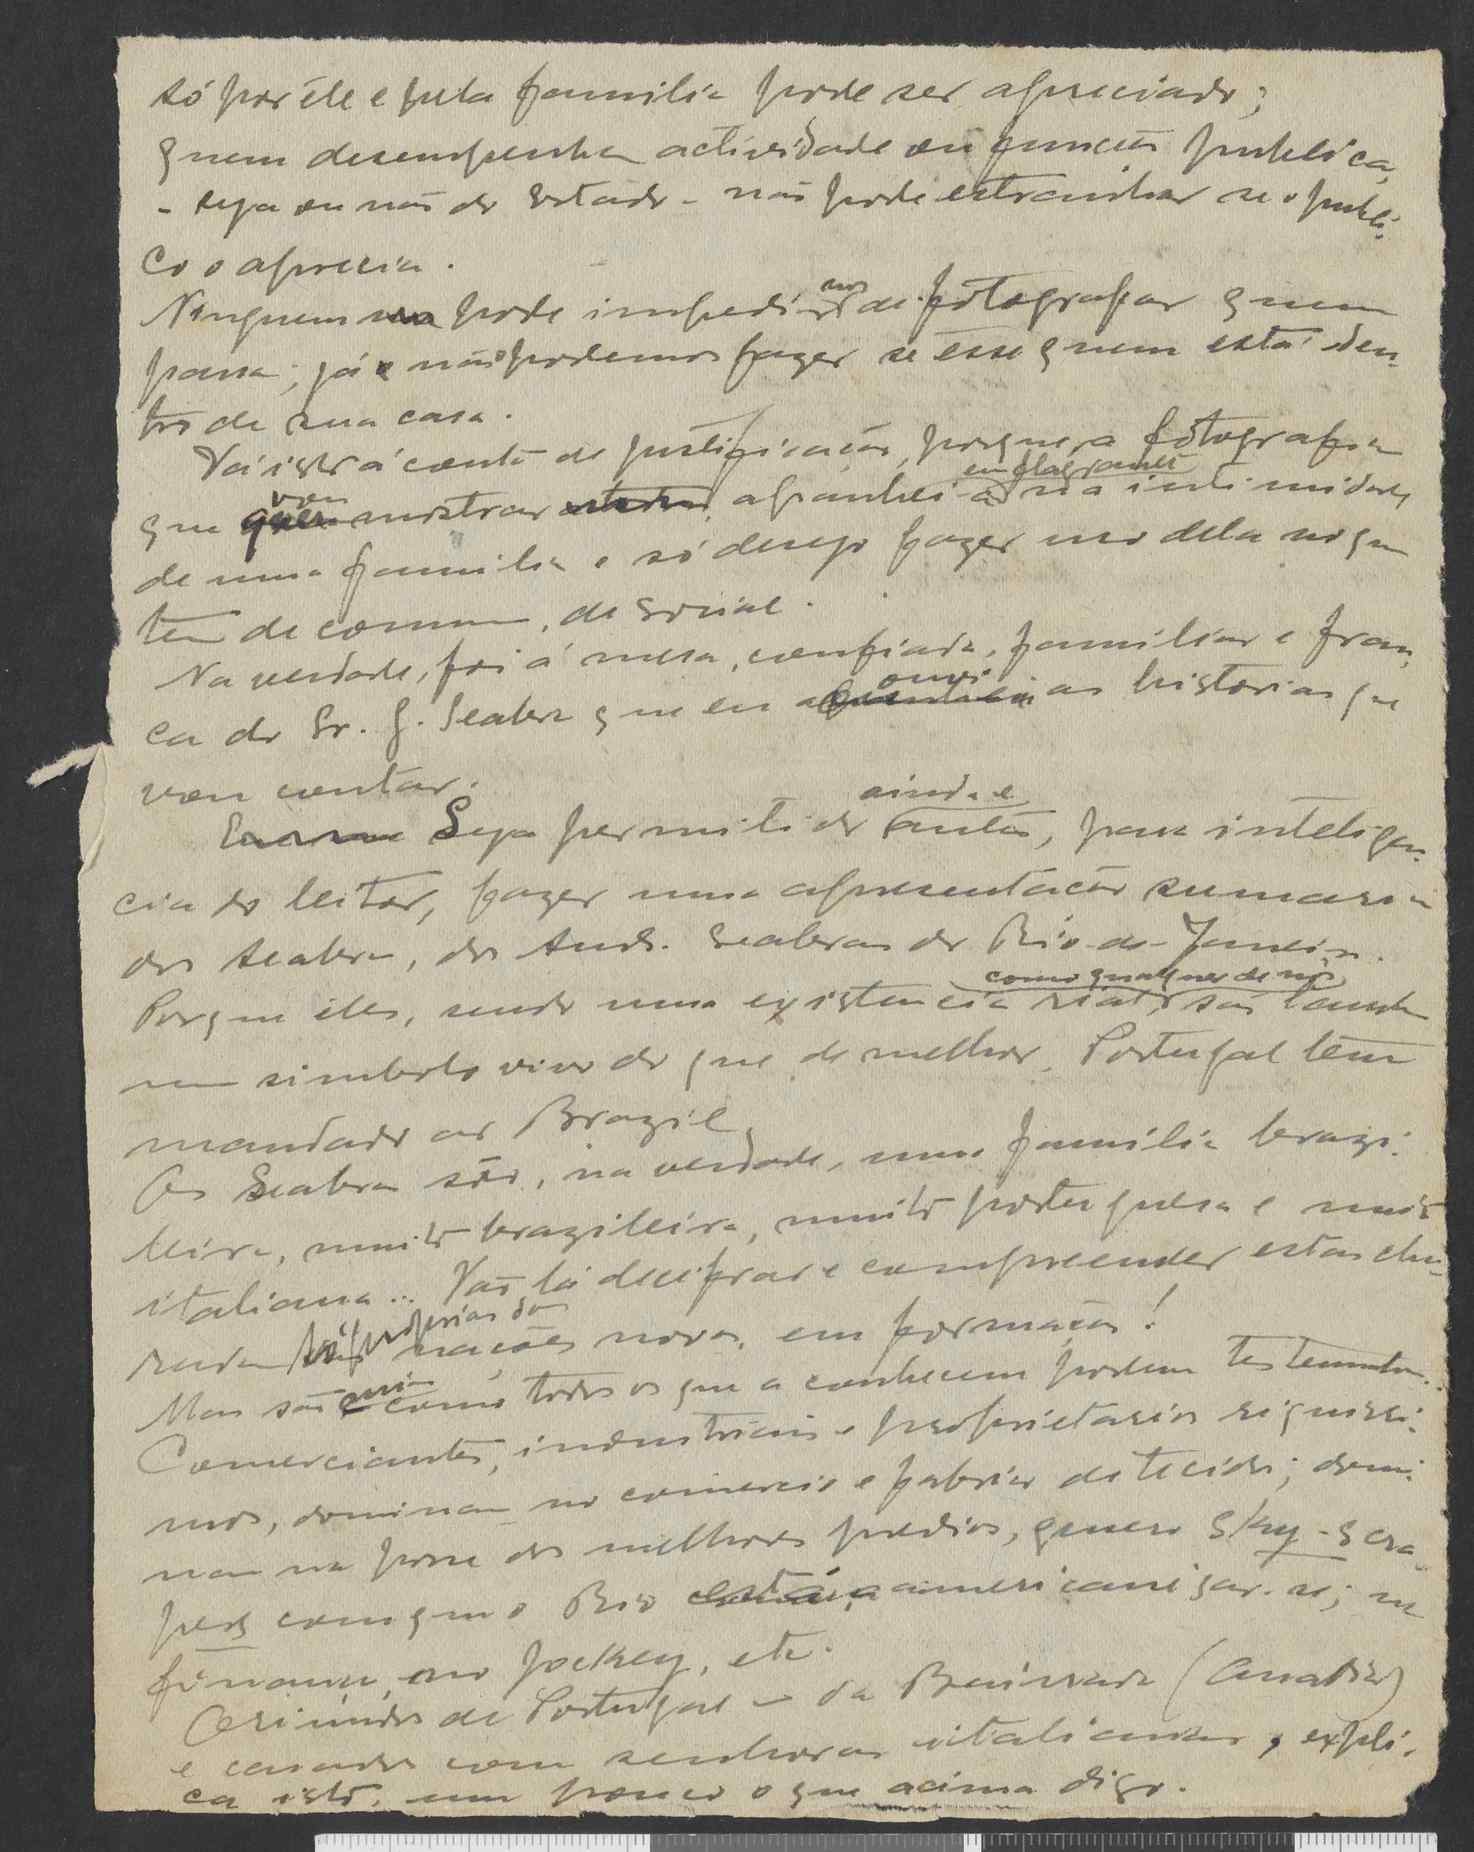 só por éle e pela familia pode ser apreciado;
quem desempenha actividade ou função publica,
- seja ou não do Estado - não pode estranhar se o publi-
co o aprecia.
Ninguem pode impedir-nos de fotografar quem
passa; já o não podemos fazer se ésse quem está den-
tro de sua casa.
Vá isto á conta de justificação, porque, a fotografia
que vou mostrar, apanhei-a em flagrante na intimidade
de uma familia e só desejo fazer uso dela no que
tem de comum, de social.
Na verdade, foi á mesa, confiada, familiar e fran-
ca do Sr. G. Seabra que eu ouvi as historias que
vou contar.
Seja permitido ainda e antes, para inteligen-
cia do leitor, fazer uma apresentação sumaria
dos Seabra, dos Seabras do Rio-de-Janeiro.
Porque eles, sendo uma existencia rial, como qualquer de nós, são tambem
um simbolo vivo do que, de melhor, Portugal tem
mandado ao Brazil.
Os Seabra são, na verdade, uma familia brazi-
leira, muito brazileira, muito portuguesa e muito
italiana... Vão lá decifrar e compreender estas cha-
radas só proprias de nações novas, em formação!
Mas são assim como todos os que a conhecem podem testemunhar.
Comerciantes, industriais e proprietarios riquissi-
mos, dominam no comercio e fabrico de tecidos; domi-
nam na posse dos melhores predios, genero sky-scra-
pers com que o Rio americanizar-se; na
finança, no Jockey, etc.
Oriundos de Portugal - da Bairrada (Anadia)
e casados com senhoras italianas, expli-
ca isto, um pouco o que acima digo.